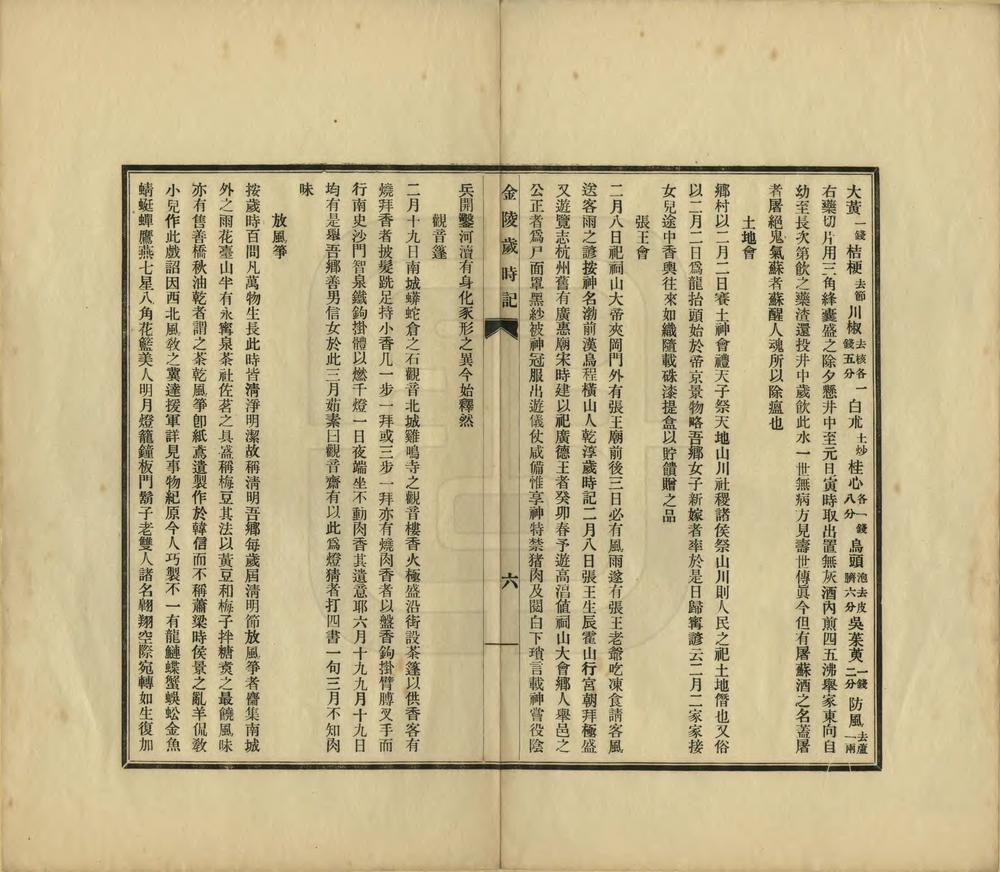 大黃一錢桔梗去節川椒去核各錢五分一白朮土炒桂心各一錢八分烏頭泡去皮臍六分吳茱萸一錢二分防風去蘆一兩
右藥切片用三角絳囊盛之除夕懸井中至元日寅時取出置無灰酒內煎四五沸舉家東向自
幼至長次第飲之藥渣還投井中歲飲此水一世無病方見壽世傳眞今但有屠蘇酒之名蓋屠
者屠絕鬼氣蘇者蘇醒人魂所以除瘟也
土地會
鄉村以二月二日賽土神會禮天子祭天地山川社稷諸侯祭山川則人民之祀土地僭也又俗
以二月二日爲龍抬頭始於帝京景物略吾鄉女子新嫁者率於是日歸寧諺云二月二家家接
女兒途中香輿往來如織隨載硃漆提盒以貯饋贈之品
張王會
二月八日祀祠山大帝夾岡門外有張王廟前後三日必有風雨遂有張王老爺吃凍食請客風
送客雨之諺按神名渤前漢烏程橫山人乾淳歲時記二月八日張王生辰霍山行宮朝拜極盛
又遊覽志杭州舊有廣惠廟宋時建以祀廣德王者癸卯春予遊高淳値祠山大會鄉人舉邑之
公正者爲尸面罩黑紗被神冠服出遊儀仗咸備惟享神特禁猪肉及閱白下瑣言載神嘗役陰
金陵歲時記
六
兵開鑿河瀆有身化豕形之異今始釋然
觀音篷
二月十九日南城蟒蛇倉之石觀音北城雞鳴寺之觀音樓香火極盛沿街設茶篷以供香客有
燒拜香者披髮跣足持小香几一步一拜或三步一拜亦有燒肉香者以盤香鉤掛臂膊叉手而
行南史沙門智泉鐵鉤掛體以燃千燈一日夜端坐不動肉香其遺意耶六月十九九月十九日
均有是舉吾鄉善男信女於此三月茹素曰觀音齋有以此爲燈猜者打四書一句三月不知肉
味
放風箏
按歲時百問凡萬物生長此時皆清淨明潔故稱清明吾鄉每歲屆清明節放風箏者齊集南城
外之雨花臺山半有永寧泉茶社佐茗之具盛稱梅豆其法以黃豆和梅子拌糖煑之最饒風味
亦有售善橋秋油乾者謂之茶乾風箏卽紙鳶遺製作於韓信而不稱蕭梁時侯景之亂羊侃敎
小兒作此戲詔因西北風敎之冀達援軍詳見事物紀原今人巧製不一有龍鰱蝶蟹蜈蚣金魚
蜻蜓蟬鷹燕七星八角花籃美人明月燈籠鐘板門鬍子老雙人諸名翺翔空際宛轉如生復加